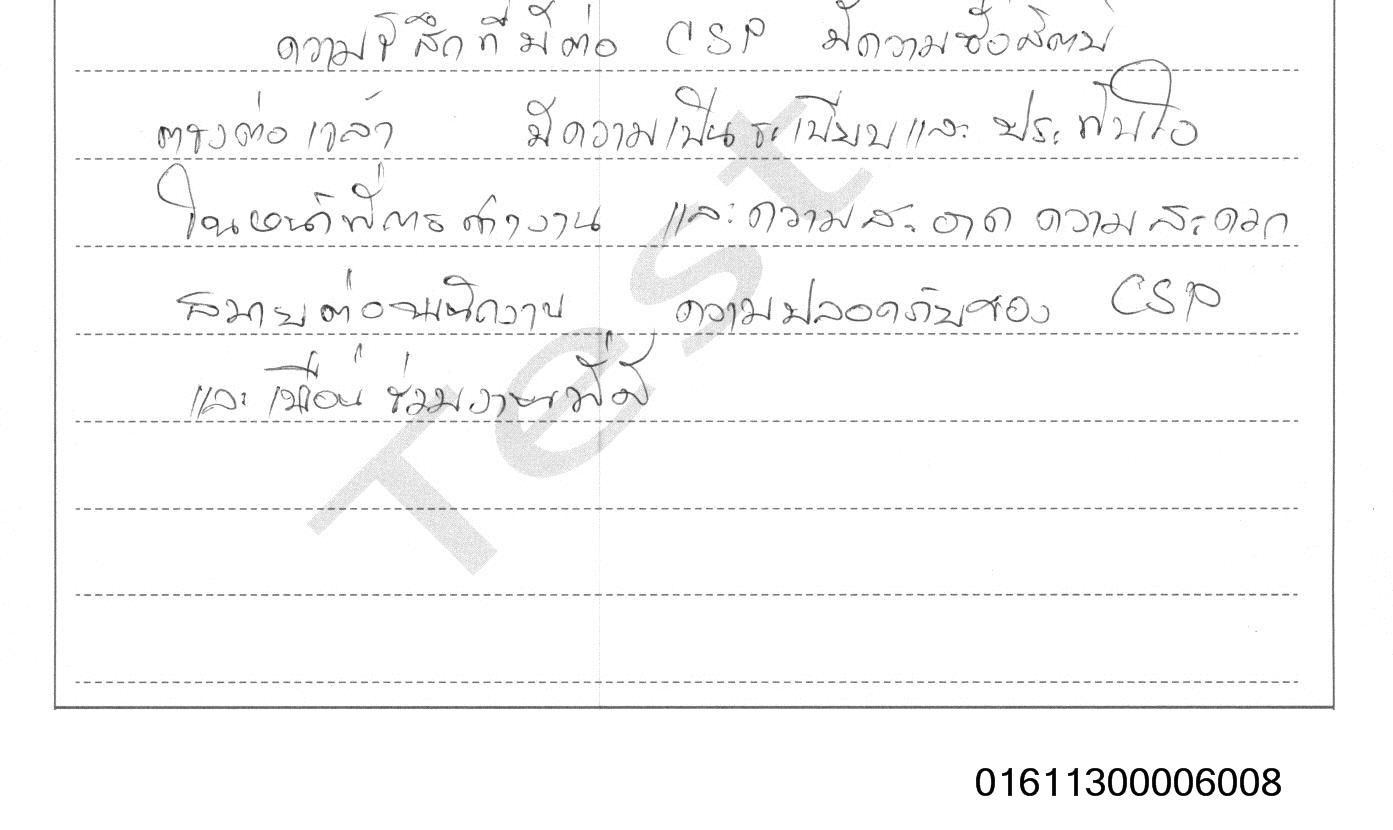 ความรู้สึกที่มีต่อ CSP มีความซื่อสัตย์
ตรงต่อเวลา มีความเป็นระเบียบและ ประทับใจ
ในหน้าที่การทำงาน และความสะอาด ความสะดวก
สบายต่อพนักงาน ความปลอดภัยของ CSP
และเพื่อนร่วมงาน
Test
01611300006008